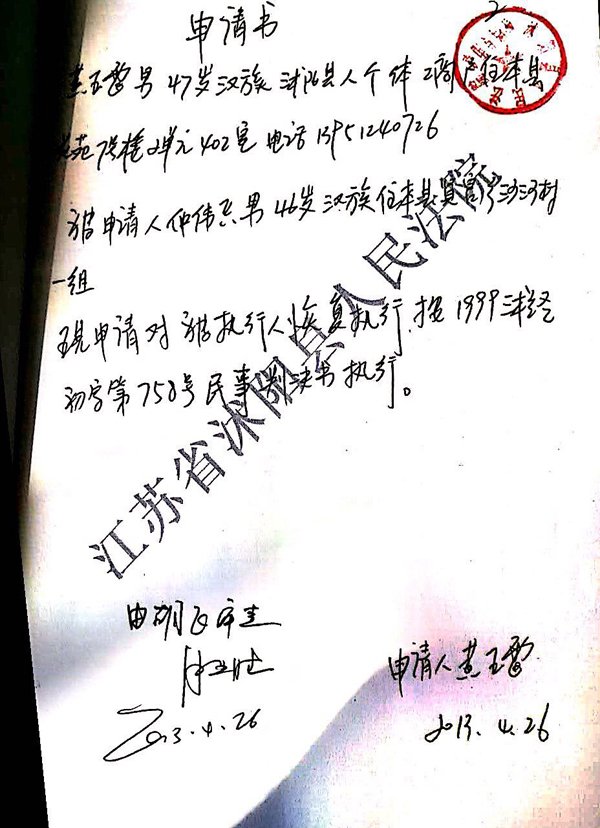 申请书
男 47岁汉族 沭阳县人个体工商户住本县
苑7号楼2单元402室 电话13951240726
被申请人仲伟 男46岁汉族住本县 村
一组
现申请对被执行人恢复执行.按1999沭经
初字第758号民事判决书执行。
江苏省沭阳县人民法院
2013.4.26
申请人黄玉雷
2013.4.26